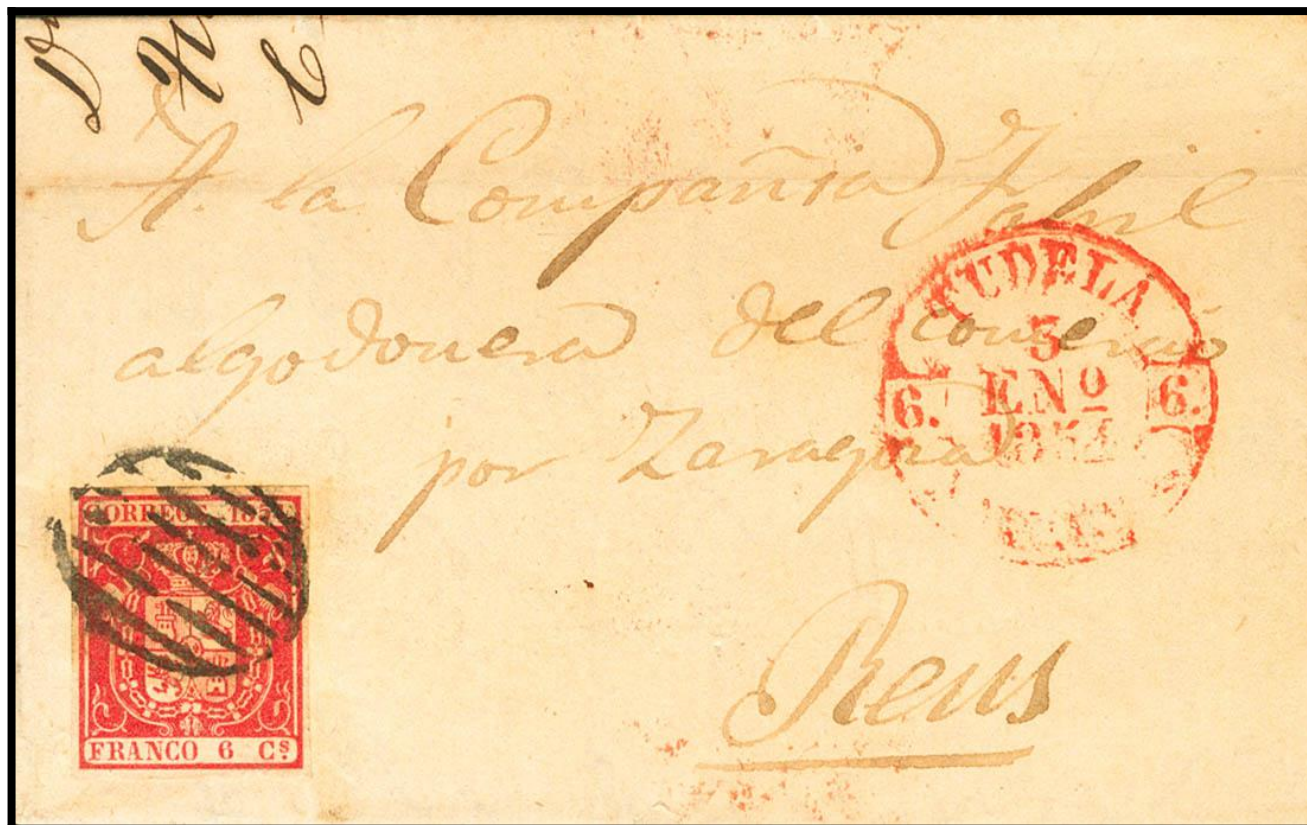 A. la Compañia Fabril
algodonera del comercio
por Zaragoza
Reus
TUDELA
5
ENº
1854
6. 6.
CORREOS 1854
FRANCO 6 Cs